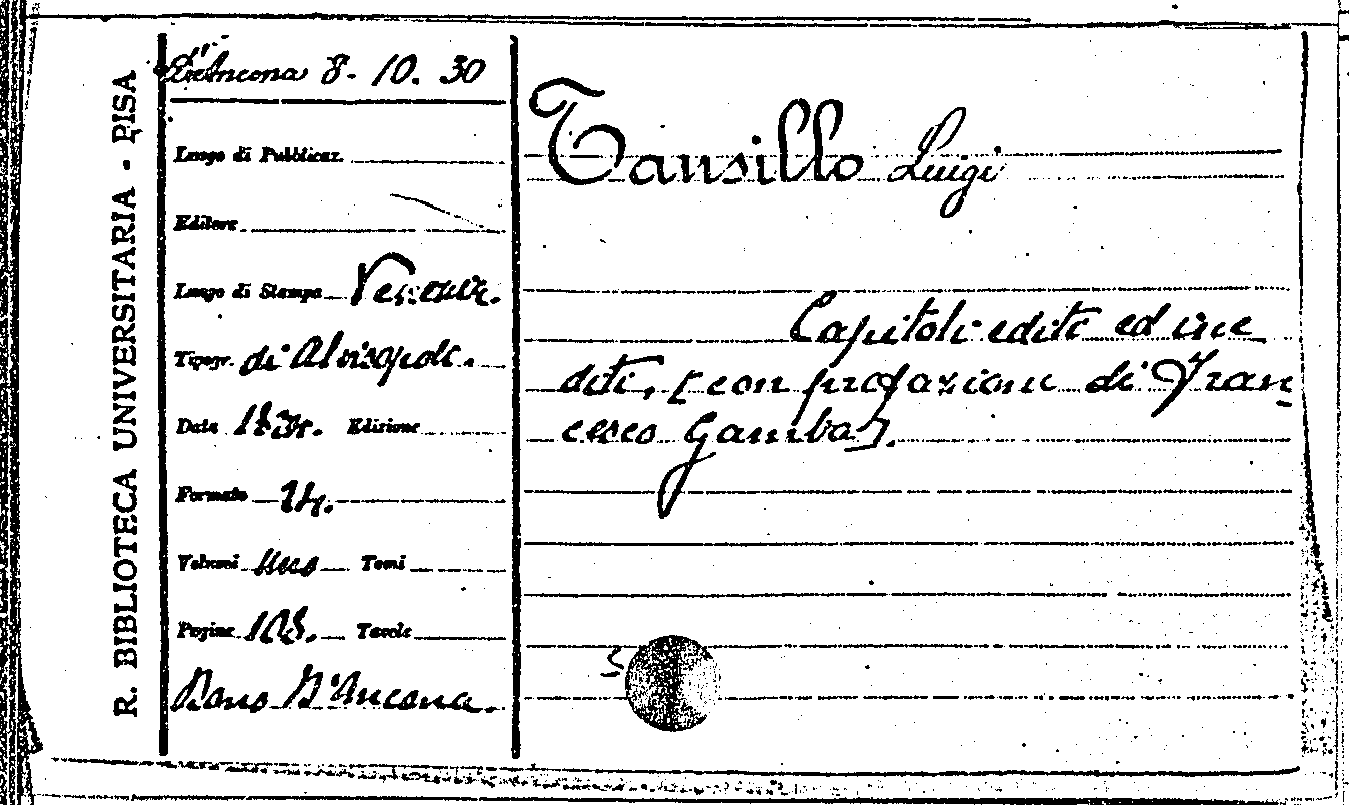 R. BIBLIOTECA UNIVERSITARIA - PISA
D'Ancona 8. 10. 30
Luogo di Pubblicaz.
Editore
Luogo di Stampa Venezia.
Tipogr. di Alvisopoli.
Data Edizione
Formato
Volumi uno Tomi
Pagine Tavole
Dono D'Ancona.
Tansillo Luigi
Capitoli editi ed ine
diti, [con prefazione di Fran
cesco Gamba].